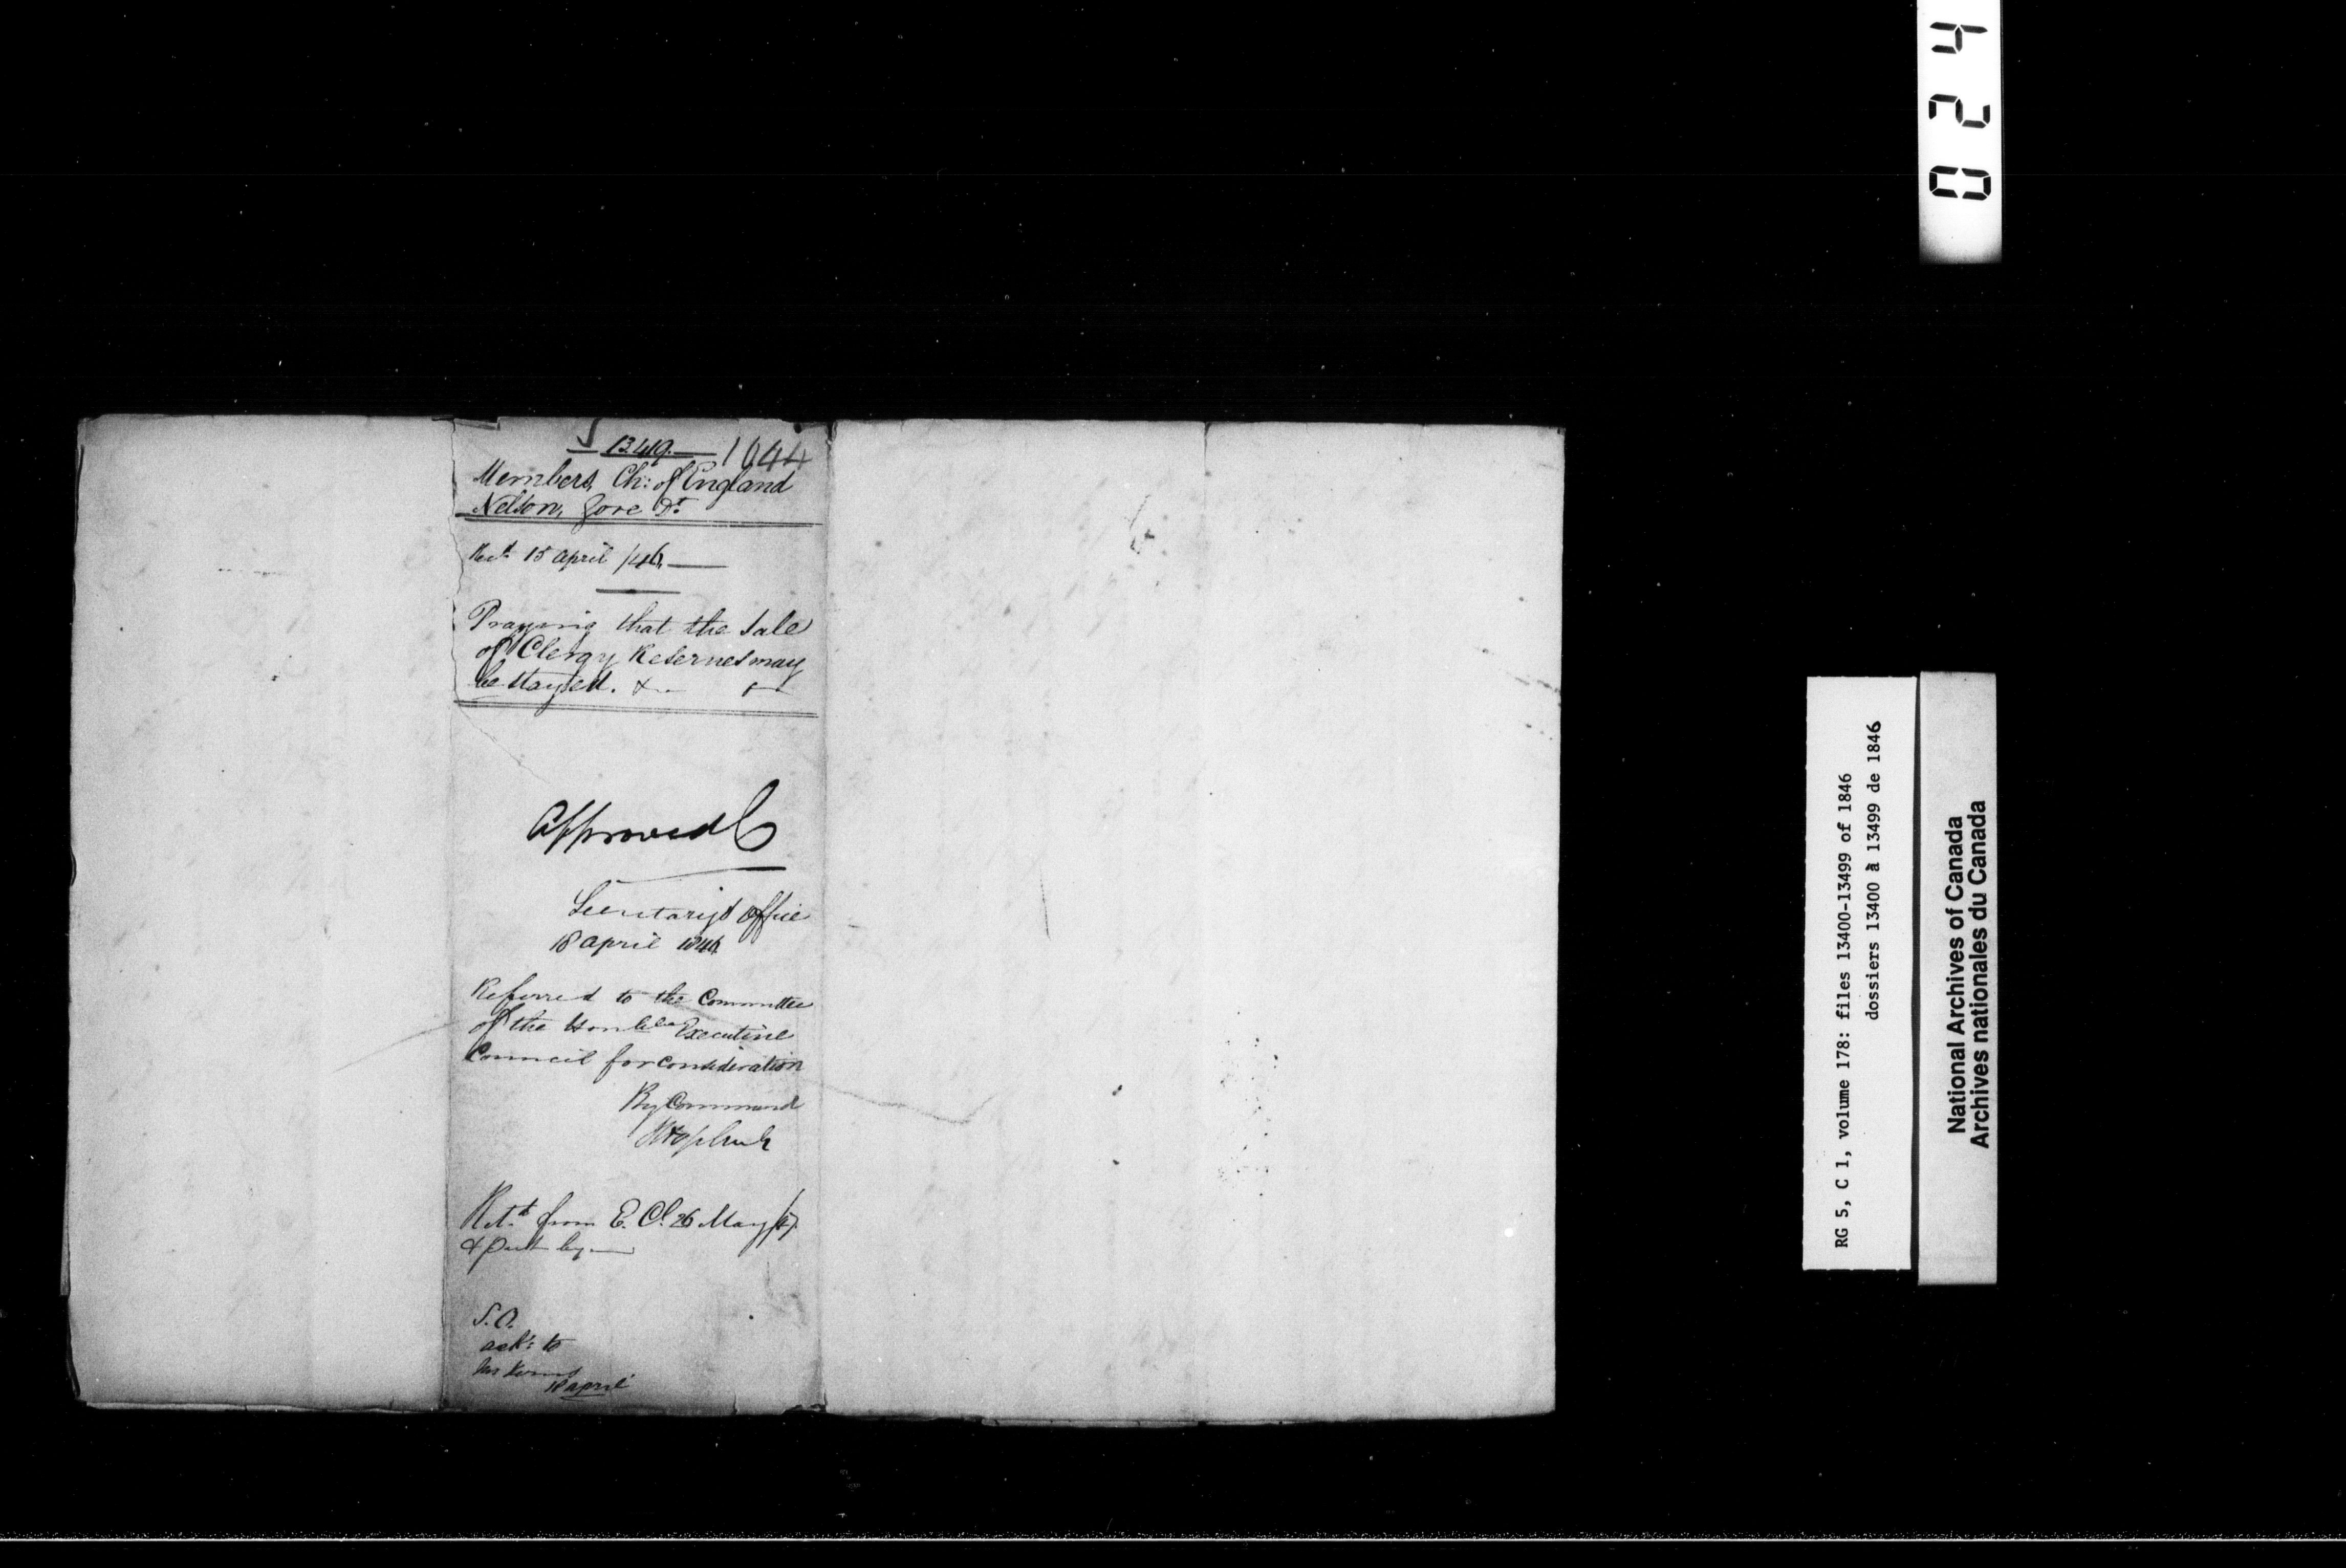 13419. 1044
Members, Ch: of England
Nelson, Gore Dt.
Recd. 15 April /46.
Praying that the sale
of Clergy Reserves may
be stayed. &
Approved
Secretary's Office
18 April 1846
Referred to the Committee
of the Honble Executive
Council for consideration
By Command
Retd from E. Cl. 26 May /47.
& put by.
S.O.
ack: to
18 April
024
RG 5, C 1, volume 178: files 13400-13499 of 1846
dossiers 13400 à 13499 de 1846
National Archives of Canada
Archives nationales du Canada